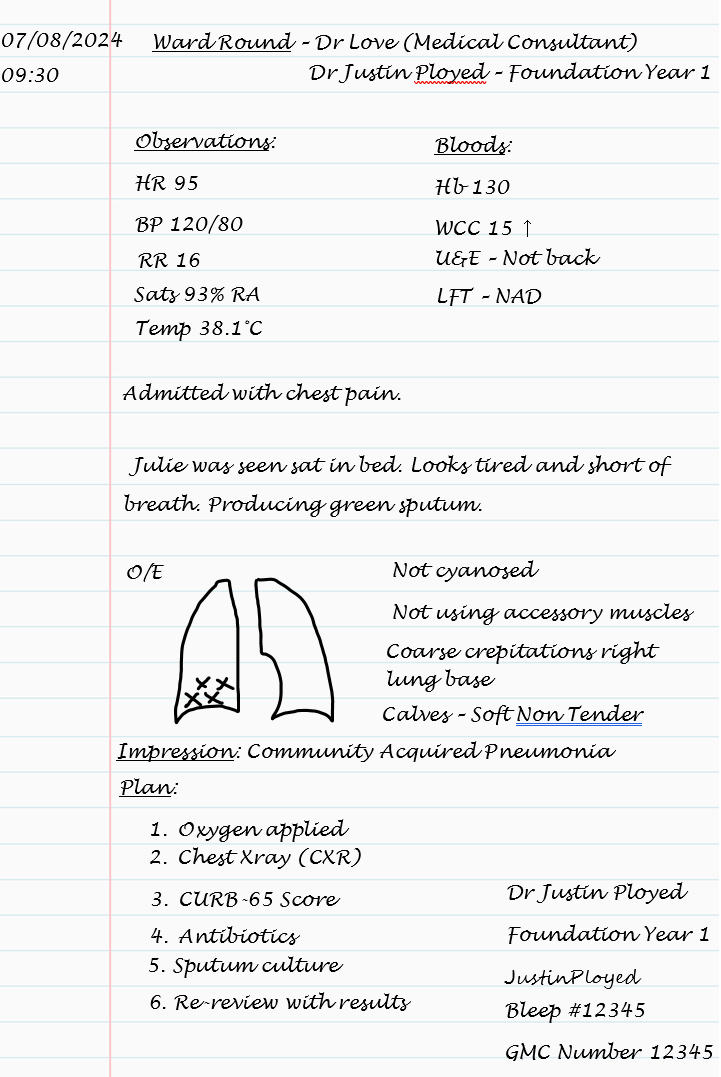 07/08/2024 Ward Round – Dr Love (Medical Consultant)
09:30 Dr Justin Ployed – Foundation Year 1
Observations:
HR 95
BP 120/80
RR 16
Sats 93% RA
Temp 38.1°C
Bloods:
Hb 130
WCC 15 ↑
U&E – Not back
LFT – NAD
Admitted with chest pain.
Julie was seen sat in bed. Looks tired and short of
breath. Producing green sputum.
O/E
Not cyanosed
Not using accessory muscles
Coarse crepitations right
lung base
Calves – Soft Non Tender
Impression: Community Acquired Pneumonia
Plan:
1. Oxygen applied
2. Chest Xray (CXR)
3. CURB-65 Score
4. Antibiotics
5. Sputum culture
6. Re-review with results
Dr Justin Ployed
Foundation Year 1
JustinPloyed
Bleep #12345
GMC Number 12345